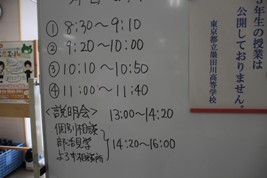 ① 8:30~9:10
② 9:20~10:00
③ 10:10~10:50
④ 11:00~11:40
<説明会> 13:00~14:20
個別相談
部活見学
よろず相談所
14:20~16:00
年生の授業は
公開しておりません。
東京都立墨田川高等学校